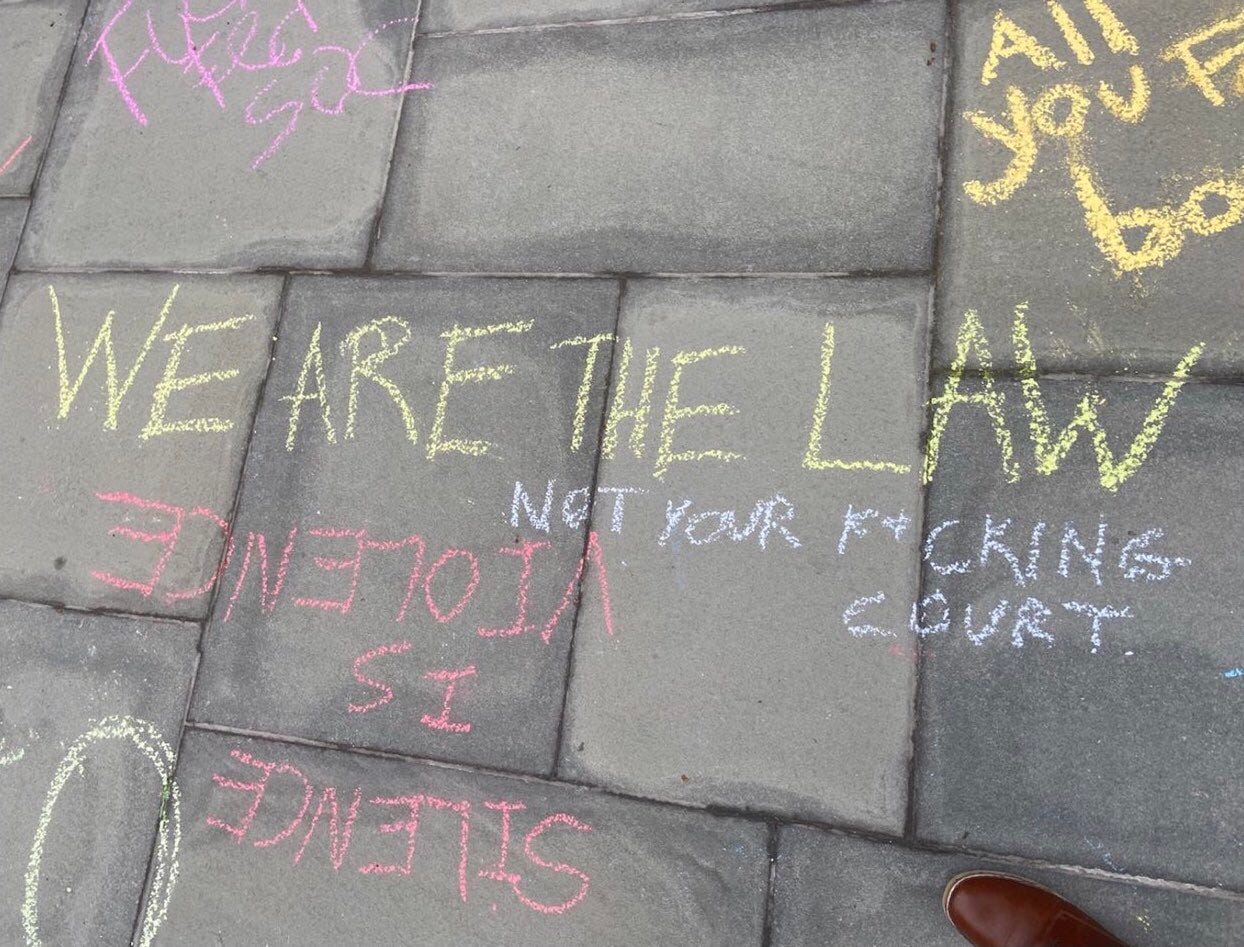 All
you
WE ARE THE LAW
NOT YOUR F*CKING
COURT.
SILENCE
IS
VIOLENCE